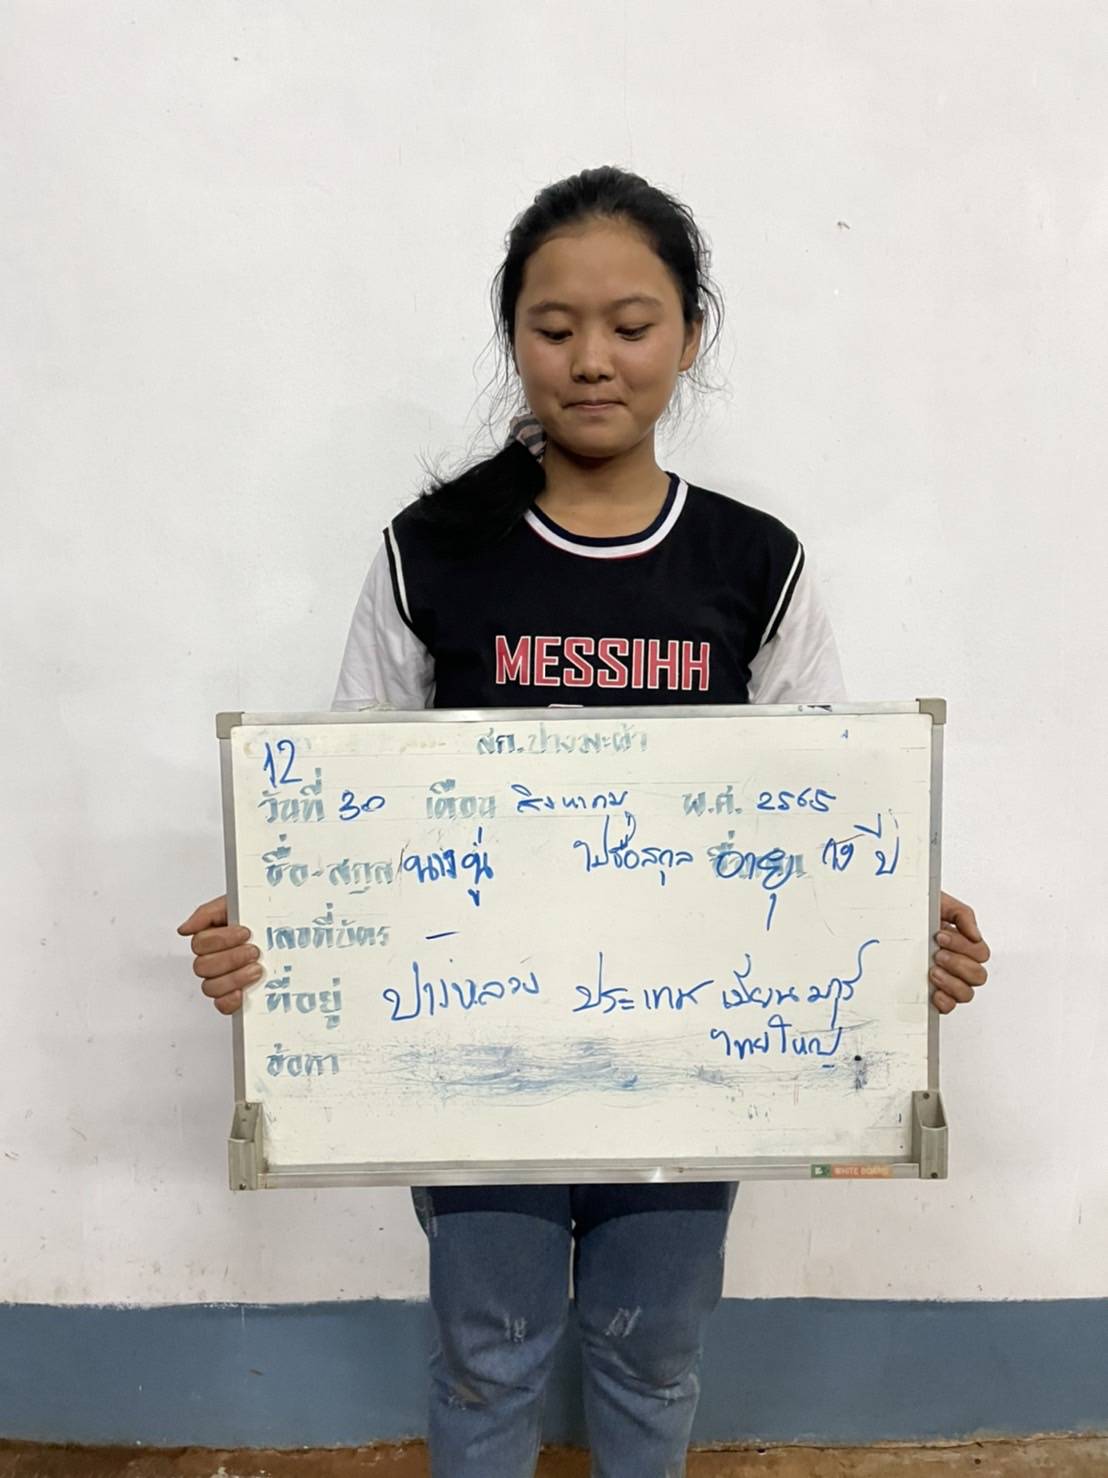 MESSIHH
สภ.ปางมะผ้า
12
วันที่ 30 เดือน สิงหาคม พ.ศ. 2565
ชื่อ-สกุล นางนู่ ไม่ชื่อสกุล อายุ 19 ปี
เลขที่บัตร -
ที่อยู่ ปางหลวง ประเทศ เมียนมาร์
ไทยใหญ่
ข้อหา
WHITE BOARD